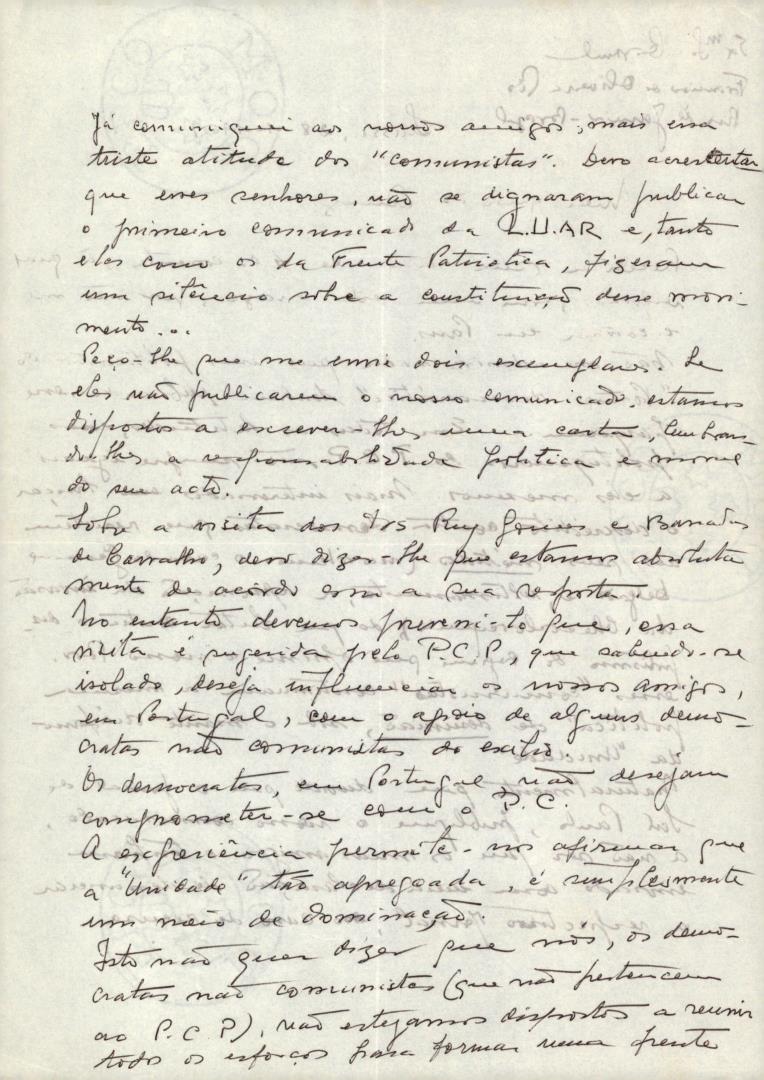 Já comuniquei aos nossos amigos, mais essa
triste atitude dos "comunistas". Devo acrestentar
que esses senhores, não se dignaram publicar
o primeiro comunicado da L.U.AR e, tanto
eles como os da Frente Patriótica, fizeram
um silêncio sobre a constituição desse movi-
mento...
Peço-lhe que me envie dois exemplares. Se
eles não publicarem o nosso comunicado, estamos
dispostos a escrever-lhes uma carta, lembran-
do-lhes a responsabilidade política e moral
do seu acto.
Sobre a visita dos Drs Ruy Gomes e Barradas
de Carvalho, devo dizer-lhe que estamos absoluta
mente de acordo com a sua resposta.
No entanto devemos preveni-lo que, essa
visita é sugerida pelo P.C.P, que sabendo-se
isolado, deseja influenciar os nossos amigos,
em Portugal, com o apoio de alguns demo-
cratas não comunistas do exílio.
Os democratas, em Portugal não desejam
comprometer-se com o P.C.
A experiência permite-nos afirmar que
a "Unidade" tão apregoada, é simplesmente
um meio de dominação.
Isto não quer dizer que nós, os demo-
cratas não comunistas (que não pertencem
ao P.C.P), não estejamos dispostos a reunir
todos os esforços para formar uma frente